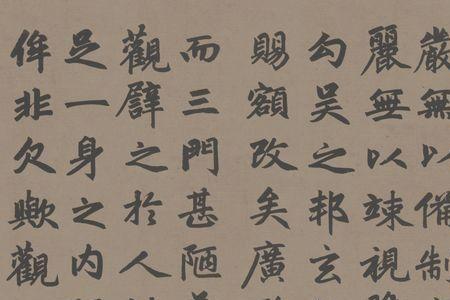 嚴無以備制
麗無以竦視
勾吳之邦玄
賜額改矣廣
而三門甚陋
觀譬之於人
足一身之內
侔非欠歟觀